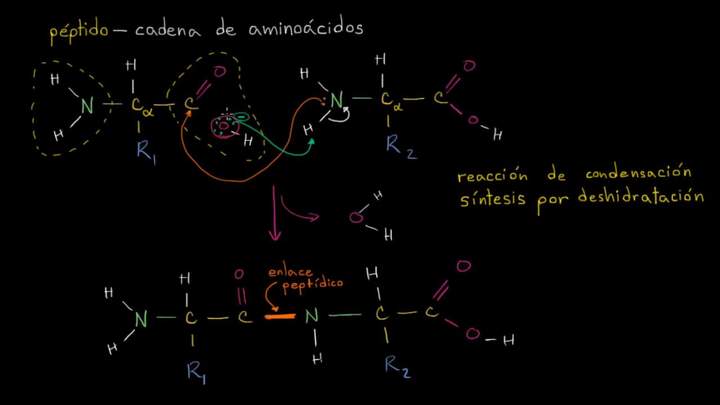 péptido — cadena de aminoácidos
H H O H H O
N — Cα — C N — Cα — C
H R1 O H H R2 O H
reacción de condensación
síntesis por deshidratación
O H H
enlace
peptídico
H H O H O
N — C — C — N — C — C
H R1 H R2 O — H